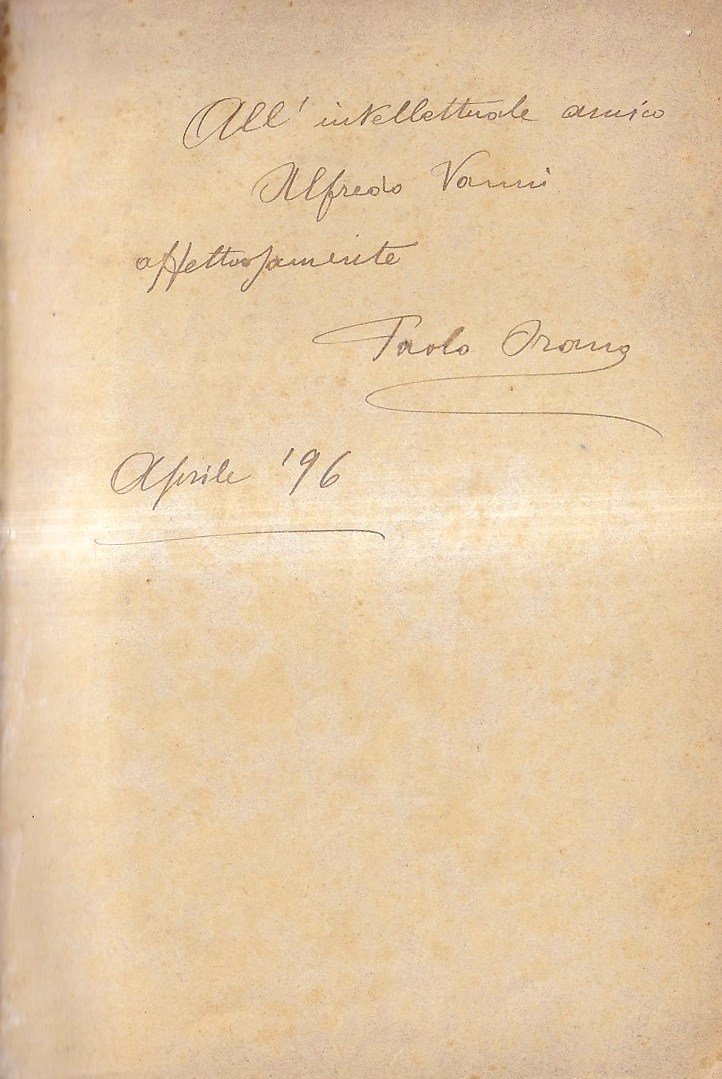 All' intellettuale amico
Alfredo Vanni
affettuosamente
Paolo Orano
Aprile '96